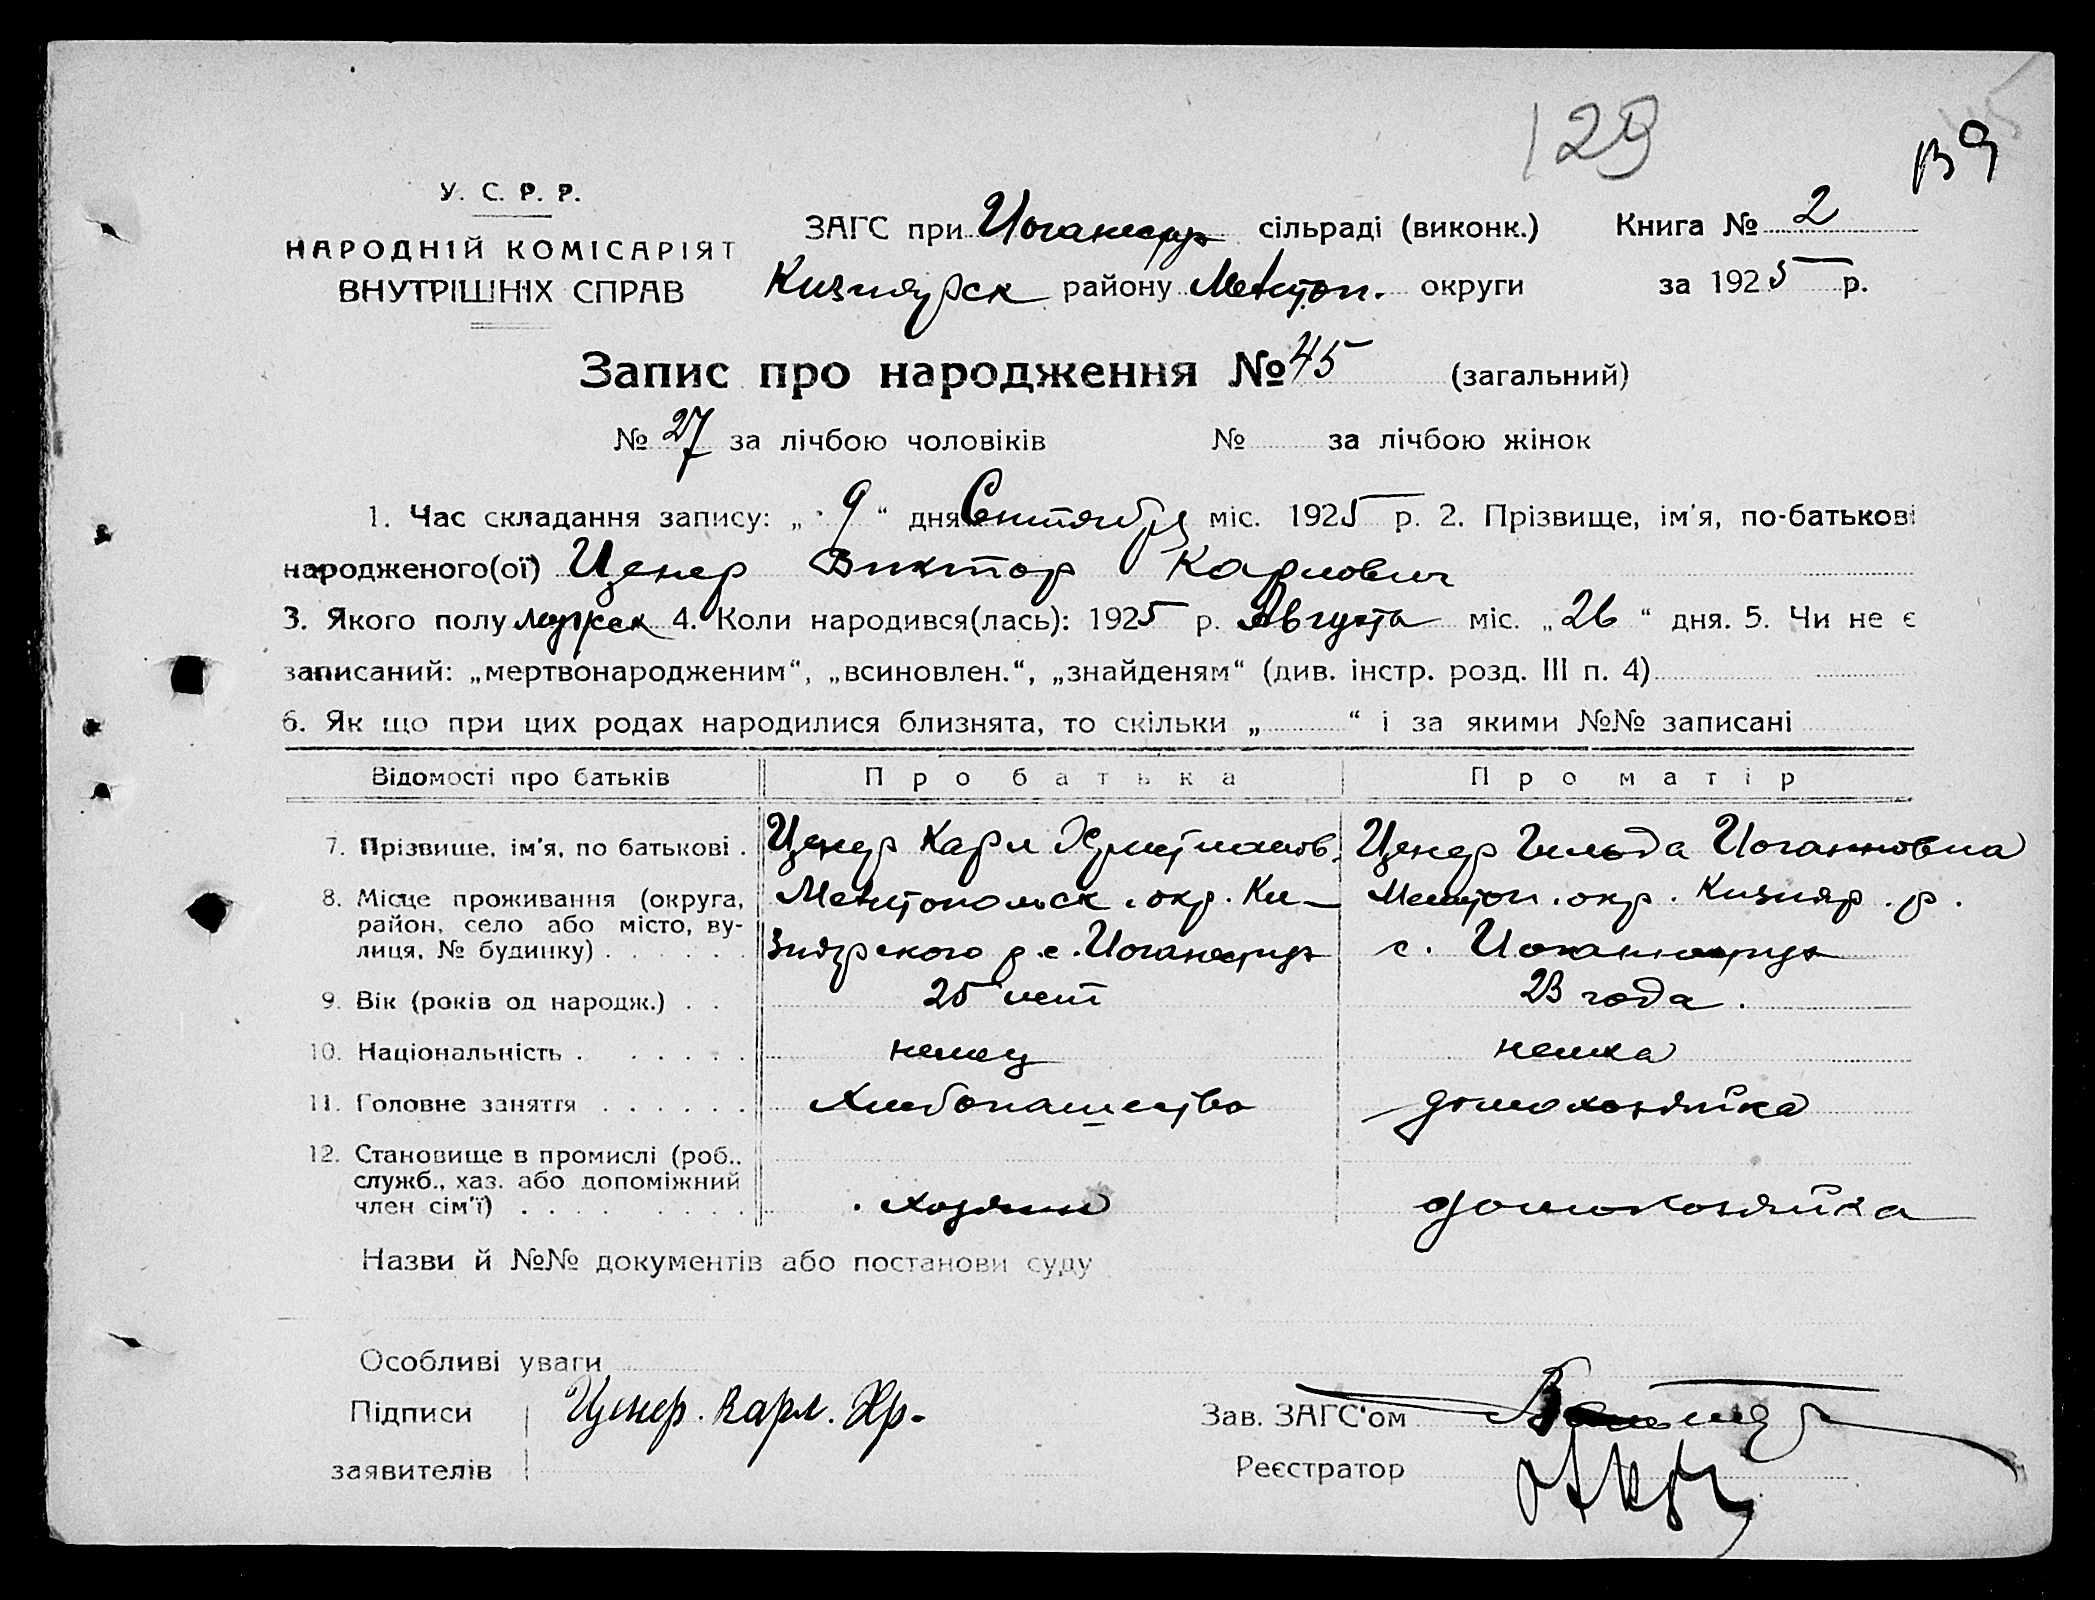 129
У. С. Р. Р.
НАРОДНІЙ КОМІСАРІЯТ
ВНУТРІШНІХ СПРАВ
ЗАГС при Иоганесру сільраді (виконк.) Книга № 2
Кизиярск району Мелитоп. округи за 1925 р.
Запис про народження № 45 (загальний)
№ 27 за лічбою чоловіків № за лічбою жінок
1. Час складання запису: „9“ дня Сентября міс. 1925 р. 2. Прізвище, ім'я, по-батькові
народженого(ої) Ценер Виктор Карлович
3. Якого полу мужск 4. Коли народився(лась): 1925 р. Августа міс. „26“ дня. 5. Чи не є
записаний: „мертвонародженим“, „всиновлен.“, „знайденям“ (див. інстр. розд. III п. 4)
6. Як що при цих родах народилися близнята, то скільки „ “ і за якими №№ записані
Відомості про батьків Про батька Про матір
7. Прізвище, ім'я, по батькові . Ценер Карл Христианов. Ценер Гильда Иоганновна
8. Місце проживання (округа, Мелитопольск. окр. Ки- Мелитоп. окр. Кизияр. р.
район, село або місто, ву-
лиця, № будинку) . . . . . . зиярского р. с. Иоганесруэ с. Иоганнесруэ
9. Вік (років од народж.) . . 25 лет 23 года.
10. Національність . . . . . . немец немка
11. Головне заняття . . . . . . Хлебопашество домохозяйка
12. Становище в промислі (роб.,
служб., хаз. або допоміжний
член сім'ї) . . . . . . . . хозяин домохозяйка
Назви й №№ документів або постанови суду
Особливі уваги
Підписи Ценер. Карл. Хр. Зав. ЗАГС'ом
заявителів Реєстратор